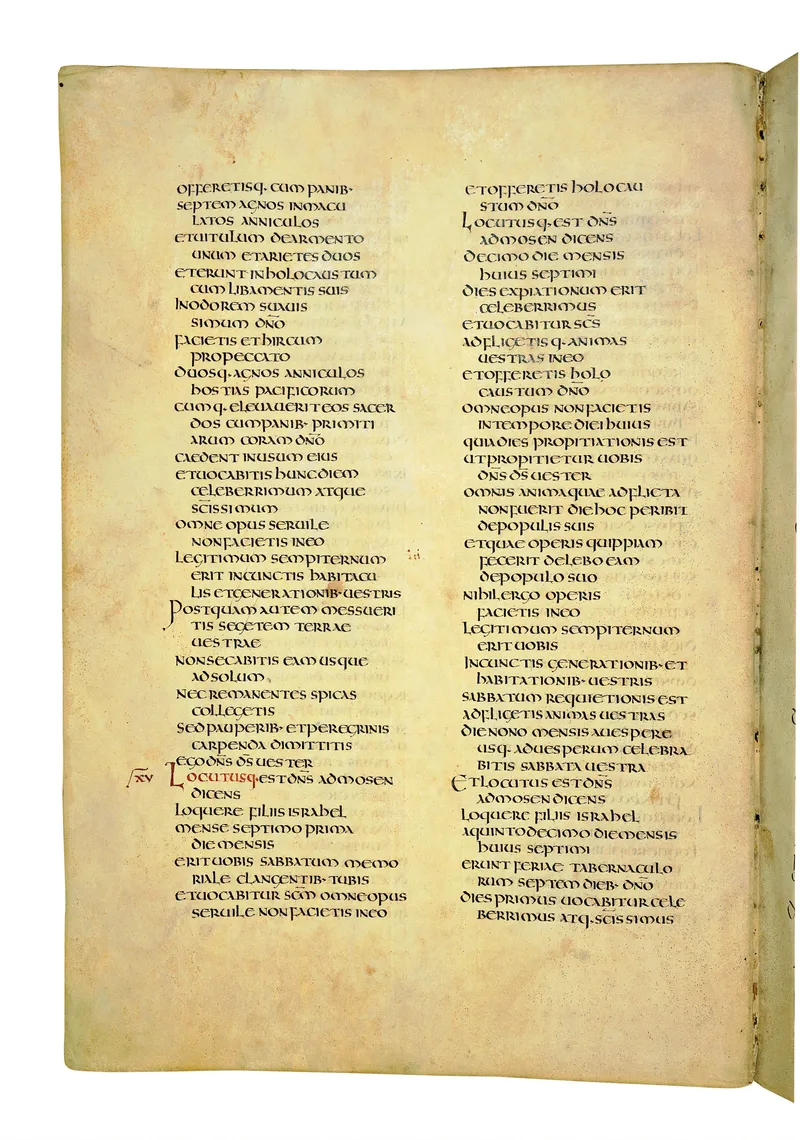 offeretisq· cum panib·
septem agnos inmacu
latos anniculos
et uitulum de armento
unum et arietes duos
et erunt in holocaustum
cum libamentis suis
In odorem suauis
simum dn̄o
facietis et hircum
pro peccato
duosq· agnos anniculos
hostias pacificorum
cumq· eleuauerit eos sacer
dos cum panib· primiti
arum coram dn̄o
caedent in usum eius
et uocabitis hunc diem
celeberrimum atque
sc̄issimum
omne opus seruile
non facietis in eo
legitimum sempiternum
erit in cunctis habitacu
lis et generationib· uestris
Postquam autem messueri
tis segetem terrae
uestrae
non secabitis eam usque
ad solum
nec remanentes spicas
colligetis
sed pauperib· et peregrinis
carpenda dimittitis
ego dn̄s d̄s uester
xv Locutusq· est dn̄s ad mosen
dicens
loquere filiis israhel
mense septimo prima
die mensis
erit uobis sabbatum memo
riale clangentib· tubis
et uocabitur sc̄m omne opus
seruile non facietis in eo
et offeretis holocau
stum dn̄o
Locutusq· est dn̄s
ad mosen dicens
decimo die mensis
huius septimi
dies expiationum erit
celeberrimus
et uocabitur sc̄s
adfligetisq· animas
uestras in eo
et offeretis holo
caustum dn̄o
omne opus non facietis
in tempore diei huius
quia dies propitiationis est
ut propitietur uobis
dn̄s d̄s uester
omnis anima quae adflicta
non fuerit die hoc peribit
de populis suis
et quae operis quippiam
fecerit delebo eam
de populo suo
nihil ergo operis
facietis in eo
legitimum sempiternum
erit uobis
In cunctis generationib· et
habitationib· uestris
sabbatum requietionis est
adfligetis animas uestras
die nono mensis a uespere
usq· ad uesperum celebra
bitis sabbata uestra
Et locutus est dn̄s
ad mosen dicens
loquere filiis israhel
a quinto decimo die mensis
huius septimi
erunt feriae tabernaculo
rum septem dieb· dn̄o
dies primus uocabitur cele
berrimus atq· sc̄issimus